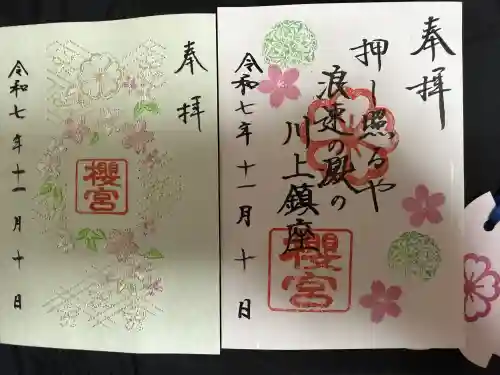 奉拝
押し照るや
浪速の風の
川上鎮座
櫻宮
令和七年十一月十日
奉拝
櫻宮
令和七年十一月十日